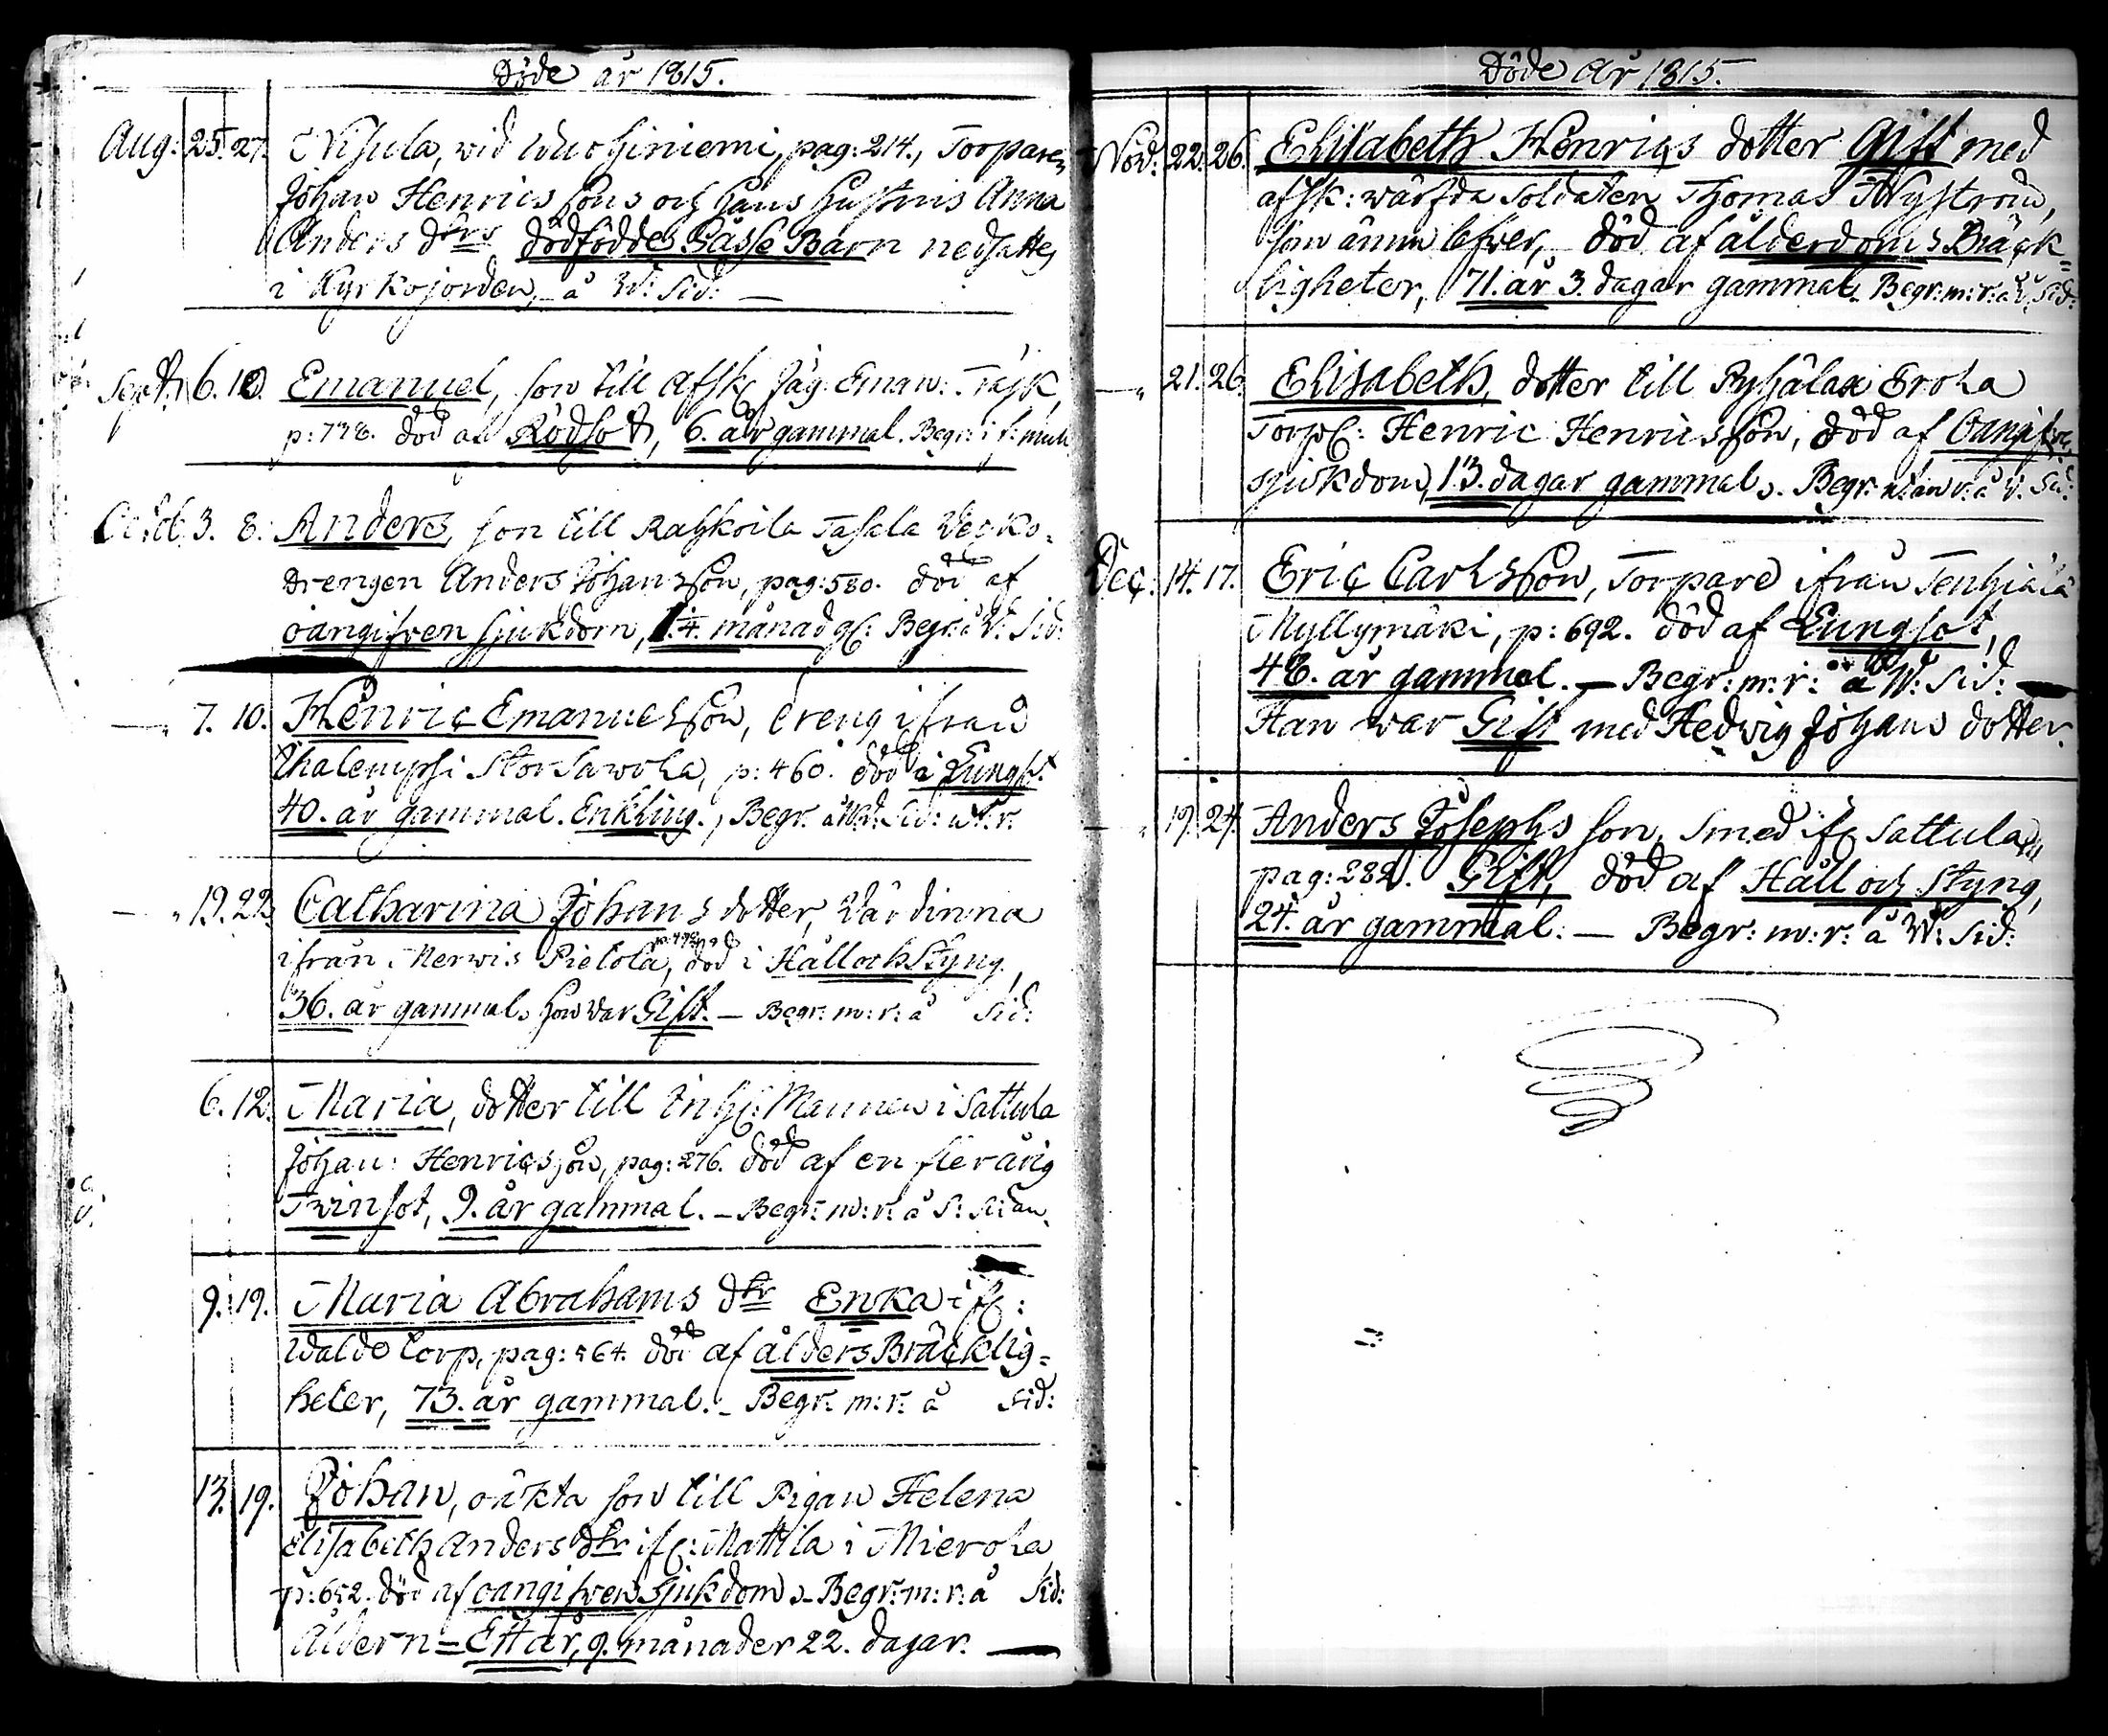 Döde år 1815.
Aug: 25. 27. Nisula, wid Wuohiniemi, pag: 214., Torparen
Johan Henrics sons och hans hustrus Anna
Anders dtrs dödfödde Gåsse Barn nedsattes
i Kyrkojorden, å W: Sid: —
Sept. 6. 10. Emanuel, son till afsk. Jäg: Eman: Trask,
död af Rödsot, 6. år gammal. Begr:
Octob. 3. 8. Anders, son till Rahkoila Tasala Wecko-
drengen Anders Johansson, pag: 580. död af
oangifven sjukdom, månad gl: Begr: å W: Sid:
— " 7. 10. Henric Emanuelsson, dreng ifrån
p: 460. död i Lungst.
40. år gammal. Enkling., Begr. å W: Sid: ut: r.
— " 19. 22. Catharina Johans dotter, Wärdinna
ifrån Merwis Pietola, död i Håll och Styng,
36. år gammal. hon war Gift. — Begr: m: r: å Sid:
6. 12. Maria, dotter till Inh: Mannen i Sattula
Johan: Henricsson, pag: 276. död af en flerårig
Twinsot, 9. år gammal. — Begr: m: r: å S: Sidan.
9. 19. Maria Abrahams dtr Enka ifr:
Waldo torp, pag: 564. död af ålders Bräcklig-
heter, 73. år gammal. — Begr: m: r: å Sid:
13. 19. Johan, oäkta son till Pigan Helena
Elisabeth Anders dtr ifr: Mattila i Mierola
p: 652. död af oangifven sjukdom. — Begr: m: r: å Sid:
Åldern — Ett år, 9. månader 22. dagar. —
Döde År 1815.
Nov: 22. 26. Elisabeth Henrics dotter Gift med
afsk: wärfda Soldaten Thomas Nyström,
som ännu lefver, död af ålderdoms Bräck-
ligheter, 71. år 3. dagar gammal. Begr: m: r: å W. Sid:
— " 21. 26. Elisabeth, dotter till Pyhälax Erola
Torp: Henric Henricsson, död af Oangifven
sjukdom, 13. dagar gammal. Begr: utan r: å W. Sid:
Dec: 14. 17. Eric Carlsson, Torpare ifrån Tenhiälä
Myllymäki, p: 692. död af Lungsot,
48. år gammal. — Begr: m: r: å W: Sid: —
Han war Gift med Hedvig Johans dotter.
— " 19. 24. Anders Josephs son, Smed ifr. Sattula
pag: 282. Gift, död af Håll och Styng,
24. år gammal. — Begr: m: r: å W: Sid: